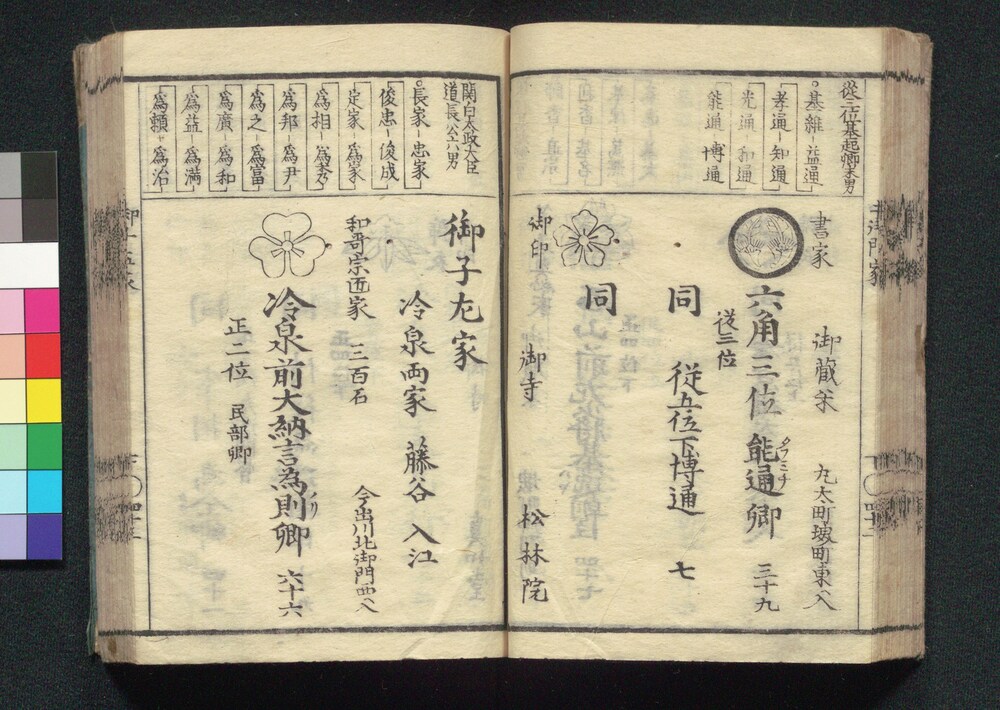 從三位基起卿末男
基維 益通
孝通 知通
光通 和通
能通 博通
書家 御蔵米 丸太町堺町東入
六角三位能通卿 三十九
タフミチ
從三位
同 従五位下博通 七
同
御印 御寺 松林院
関白太政大臣
道長公六男
長家 忠家
俊忠 俊成
定家 為家
為相 為秀
為邦 為尹
為之 為富
為廣 為和
為益 為満
為頼 為治
御子左家
冷泉両家 藤谷 入江
和哥宗匠家 三百石 今出川北御門西入
冷泉前大納言為則卿 六十六
ノリ
正二位 民部卿
四十二